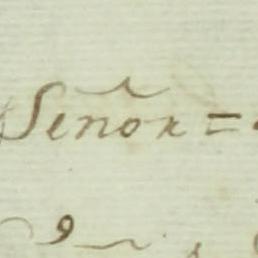 Señor =